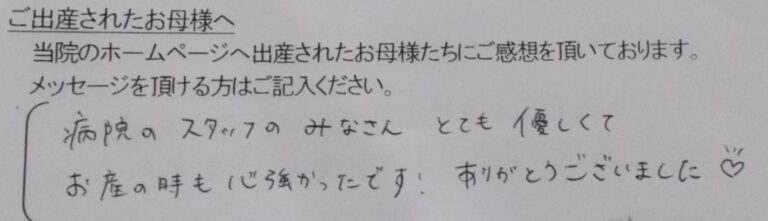 ご出産されたお母様へ
当院のホームページへ出産されたお母様たちにご感想を頂いております。
メッセージを頂ける方はご記入ください。
病院のスタッフのみなさん とても優しくて
お産の時も心強かったです! ありがとうございました♡